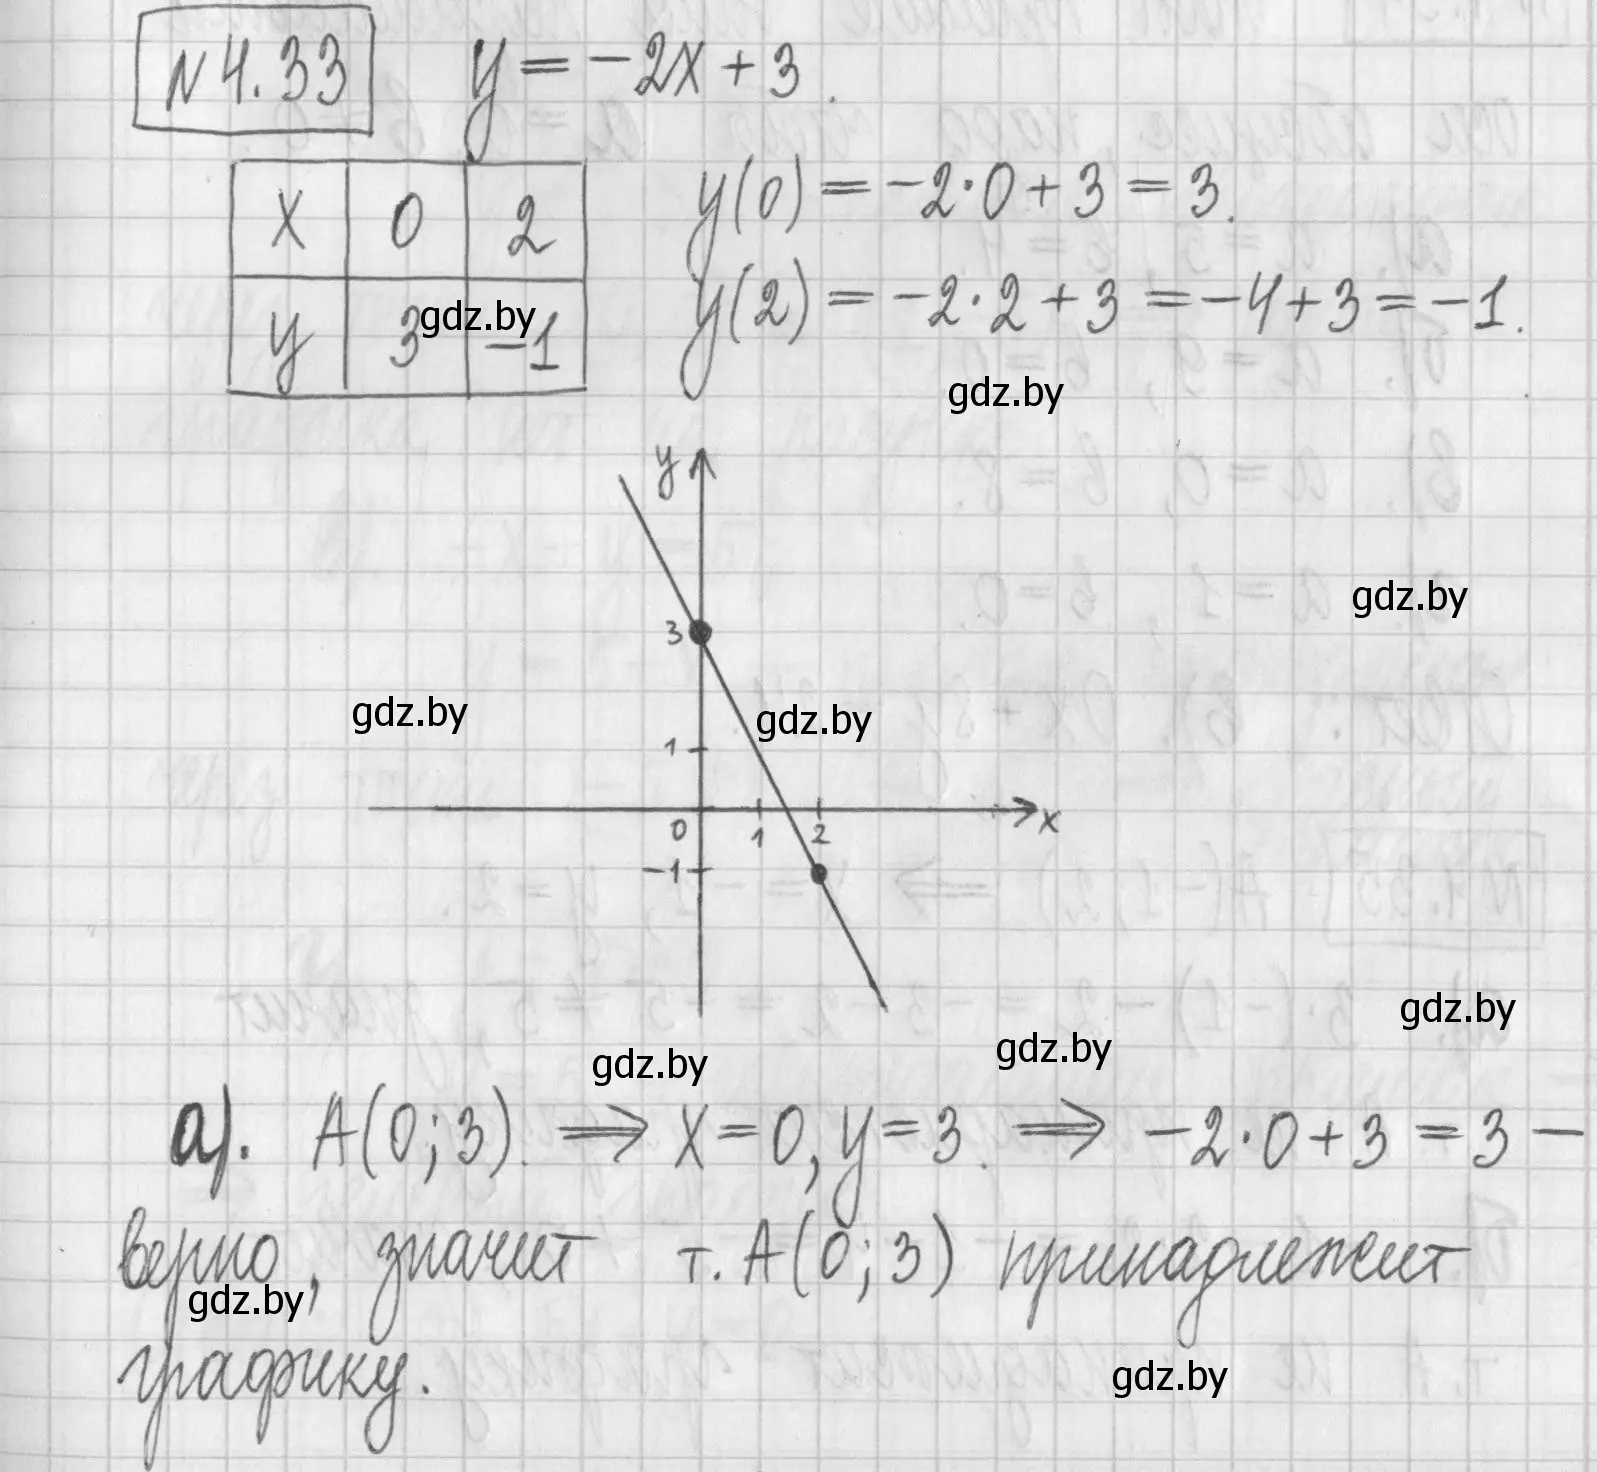 №4.33 y = -2x + 3.
x 0 2
y 3 -1
y(0) = -2·0 + 3 = 3.
y(2) = -2·2 + 3 = -4 + 3 = -1.
gdz.by
gdz.by
y
gdz.by
3
gdz.by
gdz.by
1
0 1 2 x
-1
gdz.by
gdz.by
gdz.by
а). A(0; 3). ⇒ x = 0, y = 3. ⇒ -2·0 + 3 = 3 –
верно, значит т. A(0; 3) принадлежит
gdz.by
графику.
gdz.by